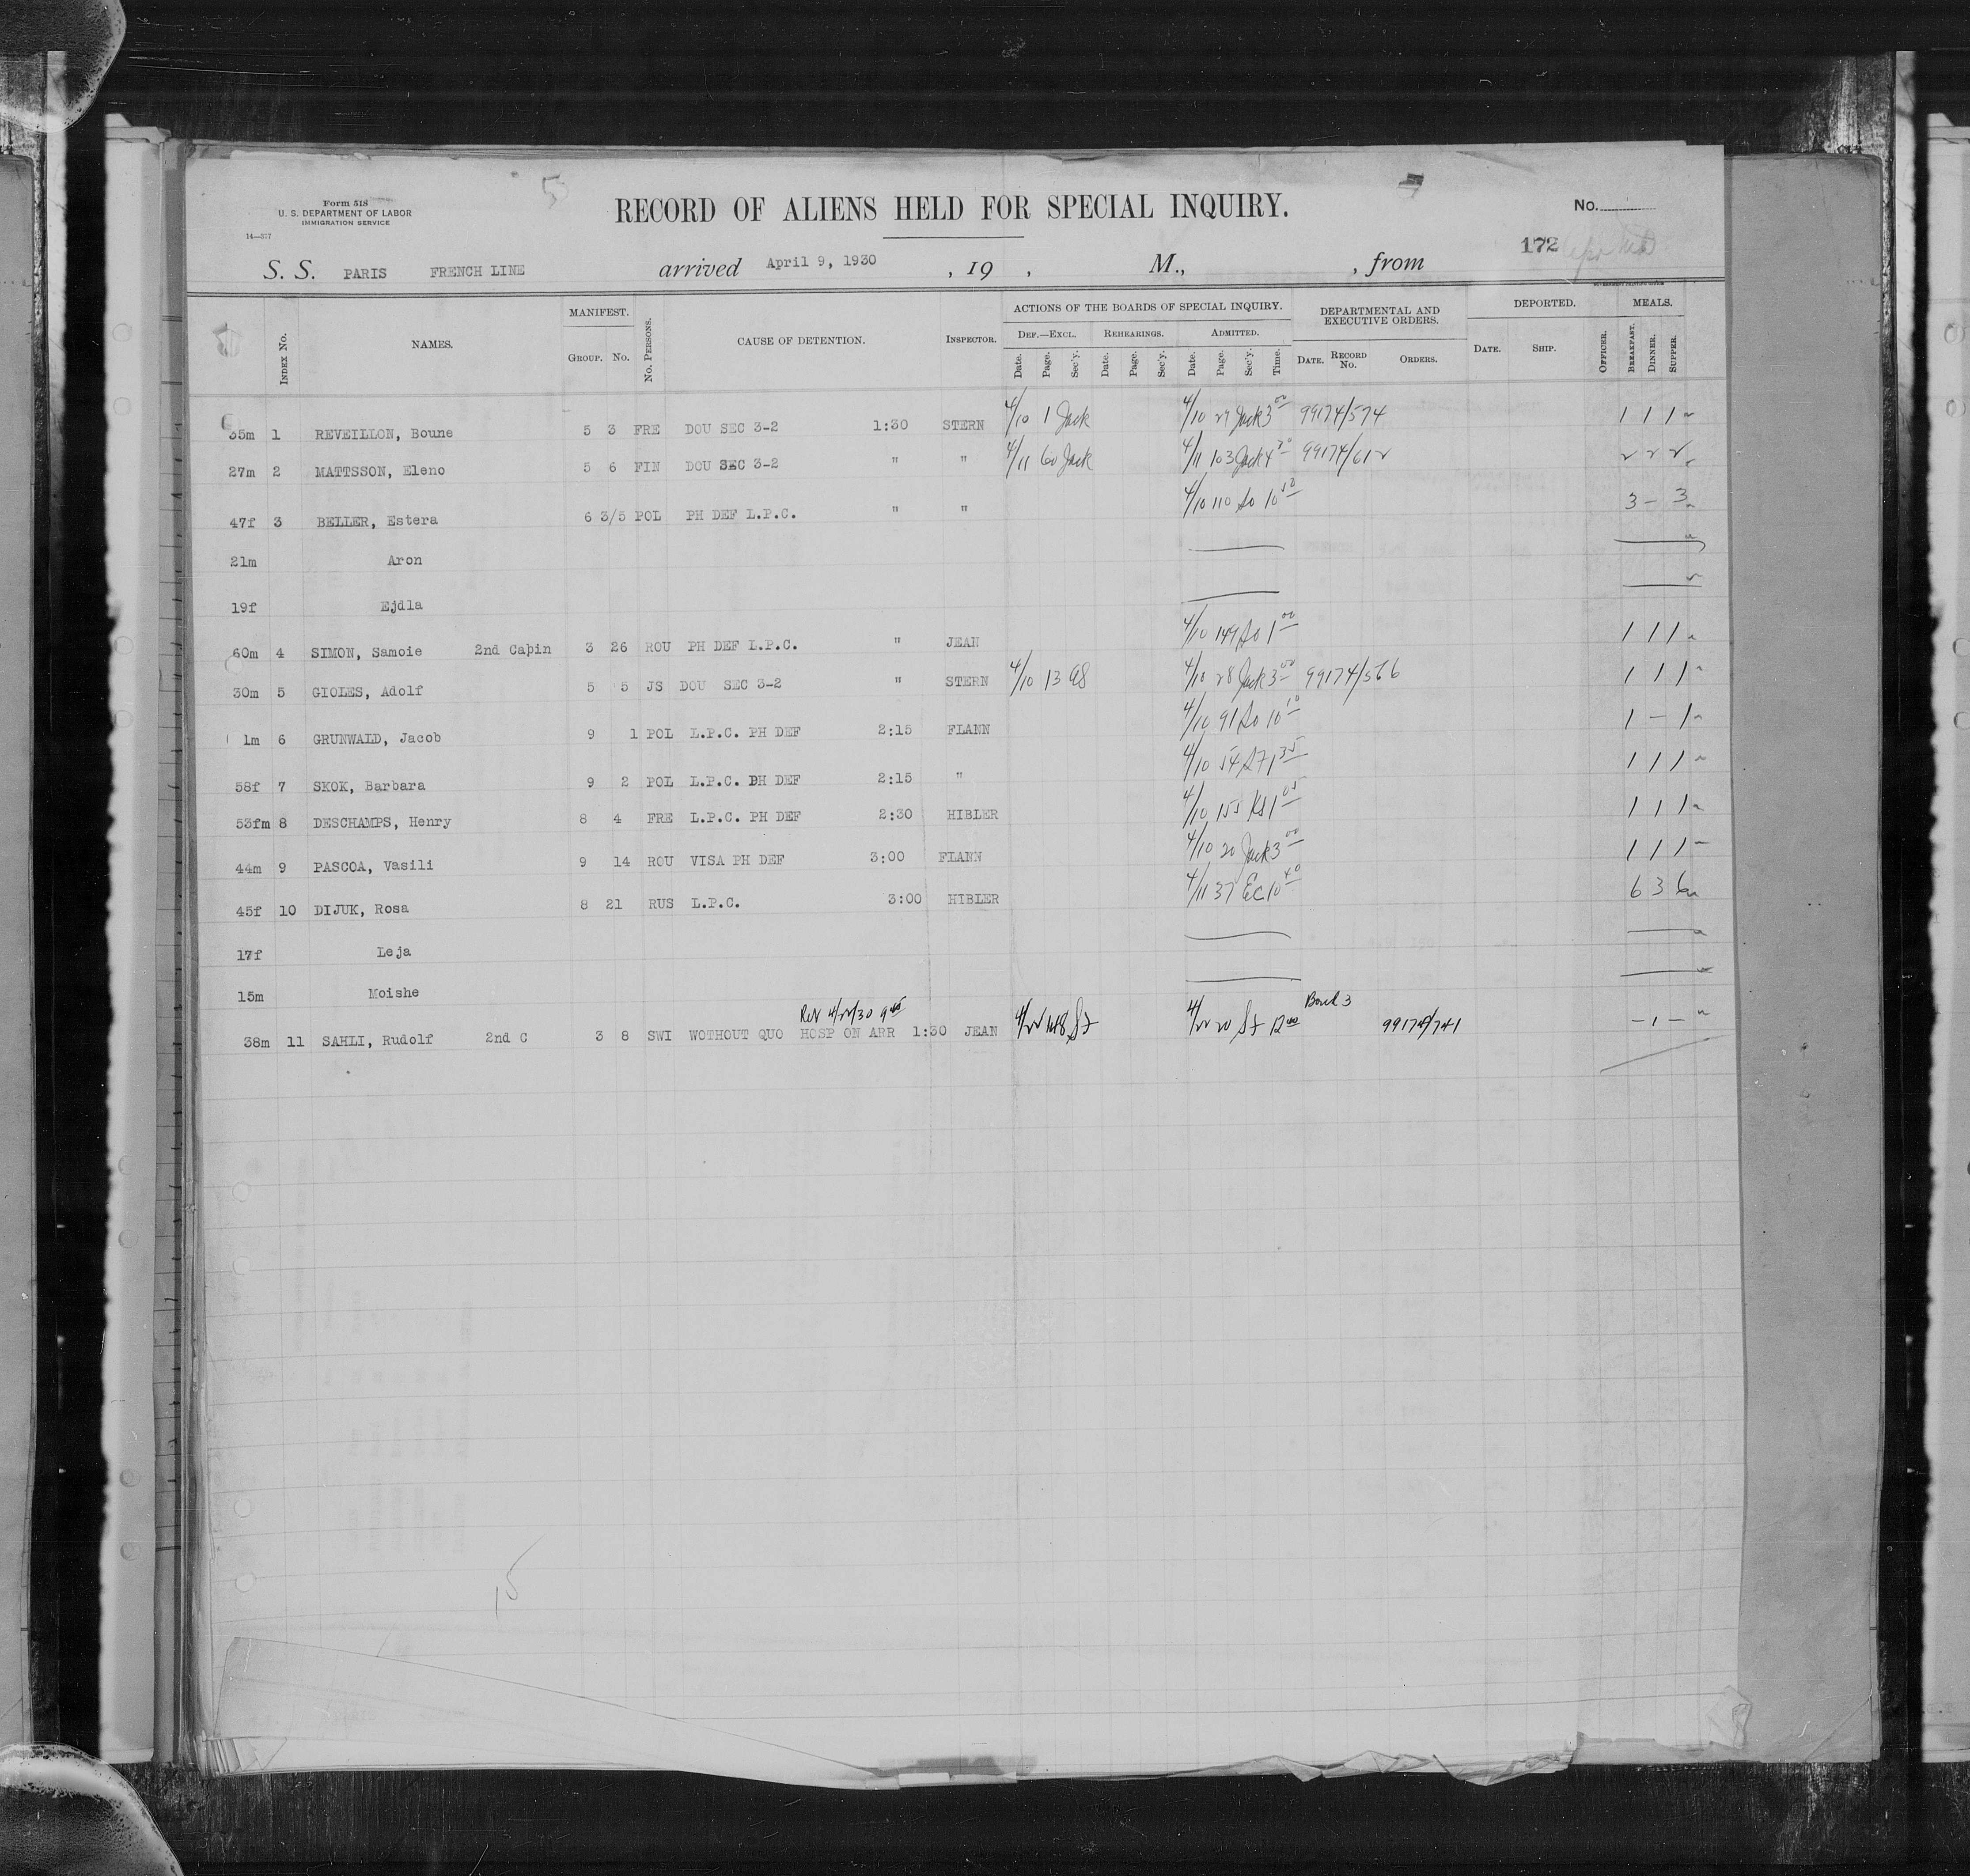 5
Form 518
U. S. DEPARTMENT OF LABOR
IMMIGRATION SERVICE
14—577
RECORD OF ALIENS HELD FOR SPECIAL INQUIRY.
No.
172
S. S. PARIS FRENCH LINE arrived April 9, 1930 , 19 , M., , from
GOVERNMENT PRINTING OFFICE
Index No. NAMES. MANIFEST. Group. No. No. Persons. CAUSE OF DETENTION. Inspector. ACTIONS OF THE BOARDS OF SPECIAL INQUIRY. Def.—Excl. Date. Page. Sec'y. Rehearings. Date. Page. Sec'y. Admitted. Date. Page. Sec'y. Time. DEPARTMENTAL AND EXECUTIVE ORDERS. Date. Record No. Orders. DEPORTED. Date. Ship. Officer. MEALS. Breakfast. Dinner. Supper.
35m 1 REVEILLON, Boune 5 3 FRE DOU SEC 3-2 1:30 STERN 4/10 1 Jack 4/10 29 Jack 3 00 99174/574 1 1 1
27m 2 MATTSSON, Eleno 5 6 FIN DOU SEC 3-2 " " 4/11 60 Jack 4/11 103 Jack 4 20 99174/612 2 2 2
47f 3 BELLER, Estera 6 3/5 POL PH DEF L.P.C. " " 4/10 110 So 10 3 - 3
21m Aron
19f Ejdla
60m 4 SIMON, Samoie 2nd Cabin 3 26 ROU PH DEF L.P.C. " JEAN 4/10 149 So 1 00 1 1 1
30m 5 GIOLES, Adolf 5 5 JS DOU SEC 3-2 " STERN 4/10 13 4/10 28 Jack 3 00 99174/566 1 1 1
1m 6 GRUNWALD, Jacob 9 1 POL L.P.C. PH DEF 2:15 FLANN 4/10 91 So 10 10 1 - 1
58f 7 SKOK, Barbara 9 2 POL L.P.C. PH DEF 2:15 " 4/10 54 1 35 1 1 1
53fm 8 DESCHAMPS, Henry 8 4 FRE L.P.C. PH DEF 2:30 HIBLER 4/10 155 KS 1 05 1 1 1
44m 9 PASCOA, Vasili 9 14 ROU VISA PH DEF 3:00 FLANN 4/10 20 Jack 3 00 1 1 1
45f 10 DIJUK, Rosa 8 21 RUS L.P.C. 3:00 HIBLER 4/11 37 EC 10 40 6 3 6
17f Leja
15m Moishe
Rel 4/22/30 9 45
Board 3
38m 11 SAHLI, Rudolf 2nd C 3 8 SWI WOTHOUT QUO HOSP ON ARR 1:30 JEAN 4/22 148 4/22 20 12 00 99174/741 - 1 -
15